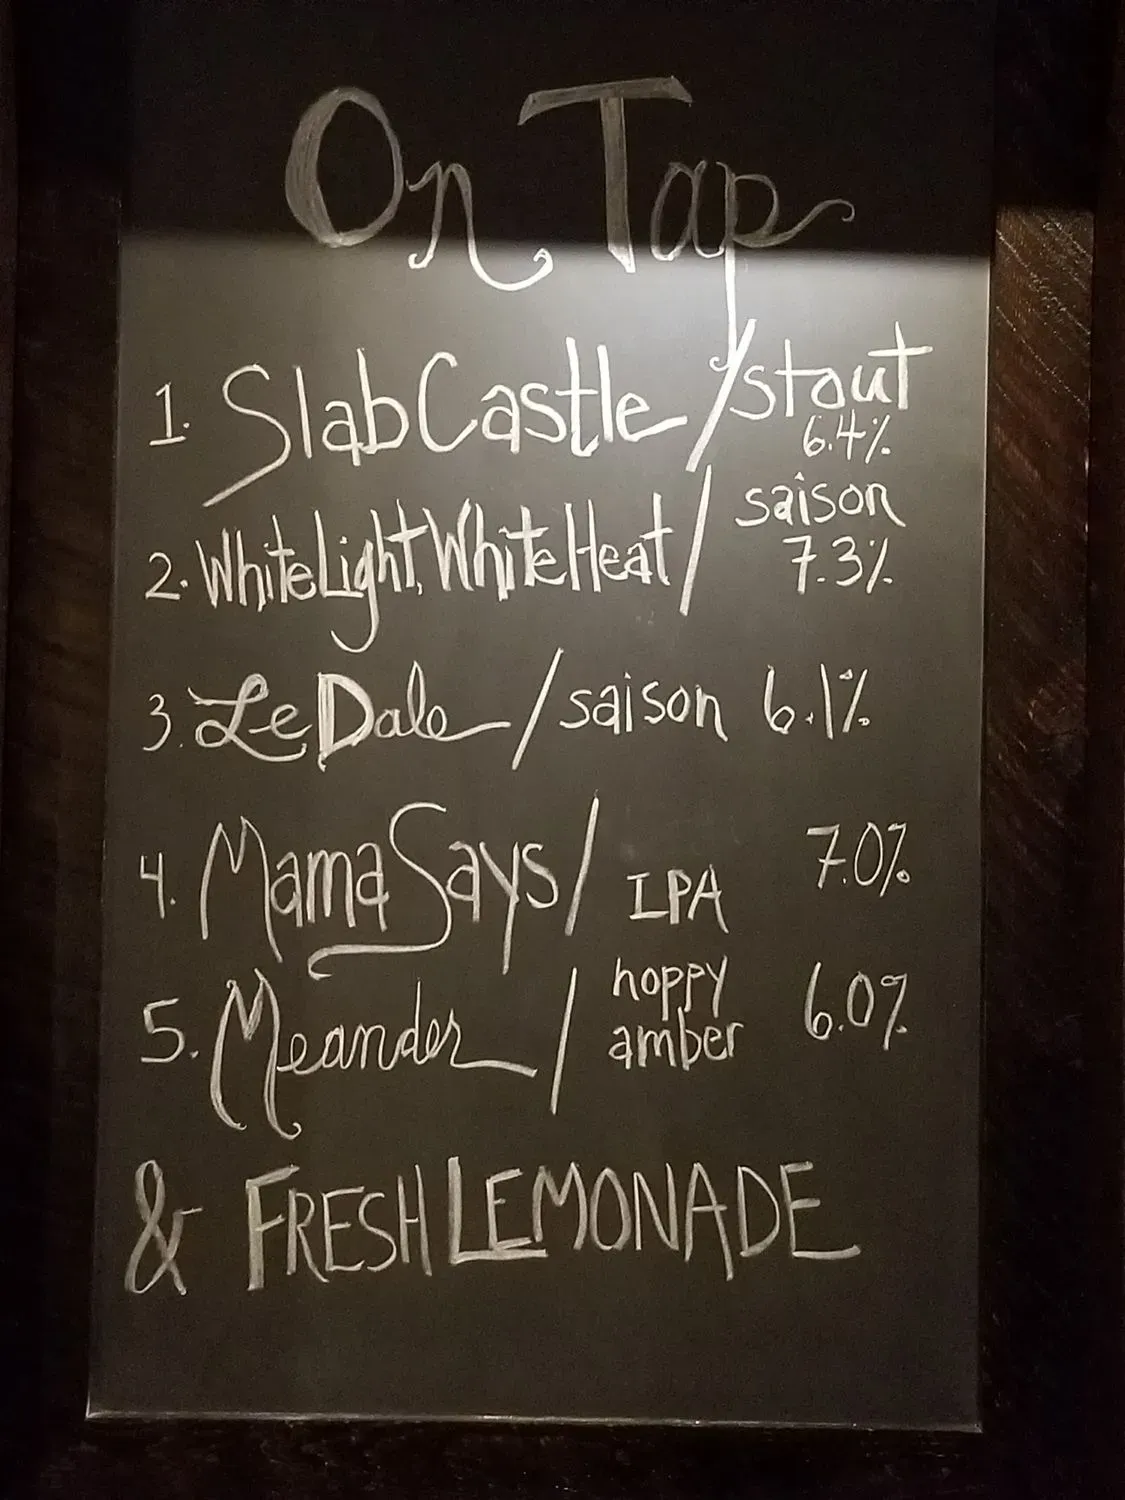 On Tap
1. Slab Castle / stout
6.4%
2. White Light, White Heat / saison
7.3%
3. Le Dale / saison 6.1%
4. Mama Says / IPA 7.0%
5. Meander / hoppy
amber 6.0%
& FRESH LEMONADE